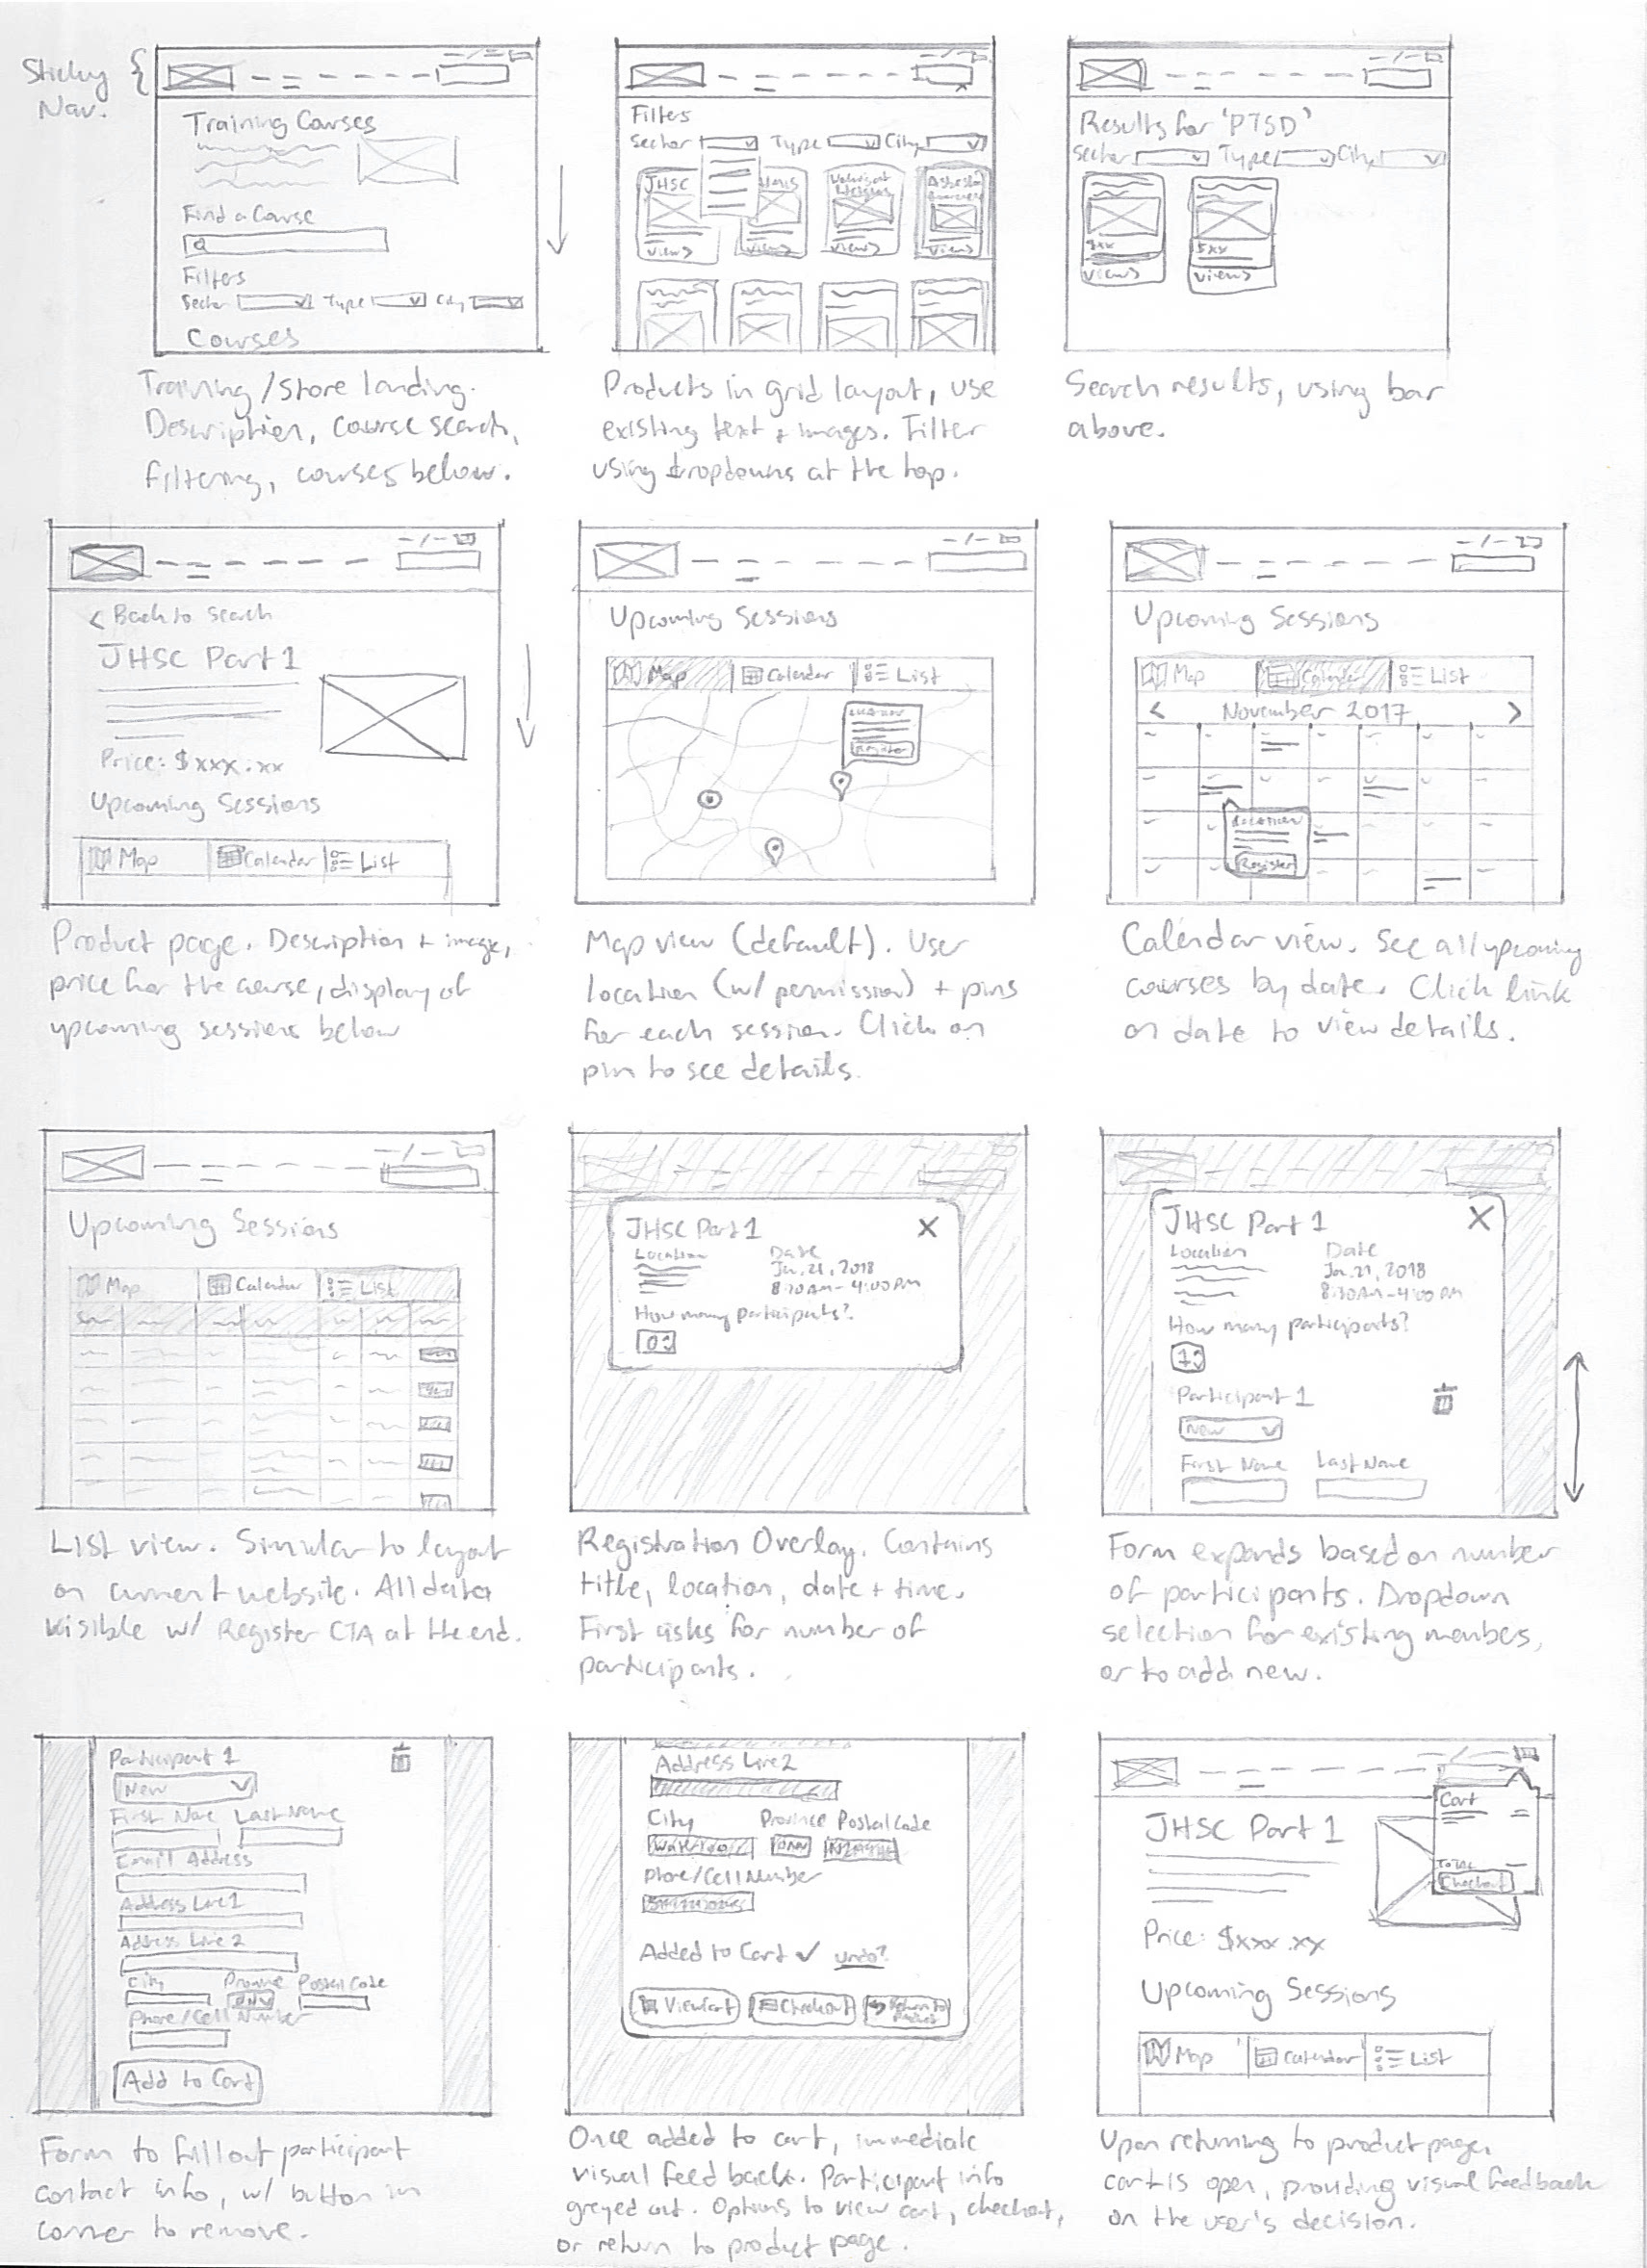 Sticky
Nav.
Training Courses
Find a Course
Filters
Sector Type City
Courses
Training/Store landing.
Description, course search,
filtering, courses below.
Filters
Sector Type City
JHSC
Views Views Views Views
Products in grid layout, use
existing text + images. Filter
using dropdowns at the top.
Results for 'PTSD'
Sector Type City
$xx $xx
Views Views
Search results, using bar
above.
< Back to search
JHSC Part 1
Price: $xxx.xx
Upcoming Sessions
Map Calendar List
Product page. Description + image,
price for the course, display of
upcoming sessions below
Upcoming Sessions
Map Calendar List
Location
Register
Map view (default). User
location (w/ permission) + pins
for each session. Click on
pin to see details.
Upcoming Sessions
Map Calendar List
< November 2017 >
Location
Register
Calendar view. See all upcoming
courses by date. Click link
on date to view details.
Upcoming Sessions
Map Calendar List
List view. Similar to layout
on current website. All data
visible w/ Register CTA at the end.
JHSC Part 1 X
Location Date
Jan. 21, 2018
8:30AM - 4:00PM
How many participants?
0
Registration Overlay. Contains
title, location, date + time.
First asks for number of
participants.
JHSC Part 1 X
Location Date
Jan. 21, 2018
8:30AM - 4:00PM
How many participants?
1
Participant 1
New
First Name Last Name
Form expands based on number
of participants. Dropdown
selection for existing members,
or to add new.
Participant 1
New
First Name Last Name
Email Address
Address Line 1
Address Line 2
City Province Postal Code
ON
Phone/Cell Number
Add to Cart
Form to fill out participant
contact info, w/ button in
corner to remove.
Address Line 2
City Province Postal Code
Waterloo ON
Phone/Cell Number
Added to Cart ✓ Undo?
View Cart Checkout Return to
Once added to cart, immediate
visual feedback. Participant info
greyed out. Options to view cart, checkout,
or return to product page.
Cart
Total
Checkout
JHSC Part 1
Price: $xxx.xx
Upcoming Sessions
Map Calendar List
Upon returning to product page,
cart is open, providing visual feedback
on the user's decision.